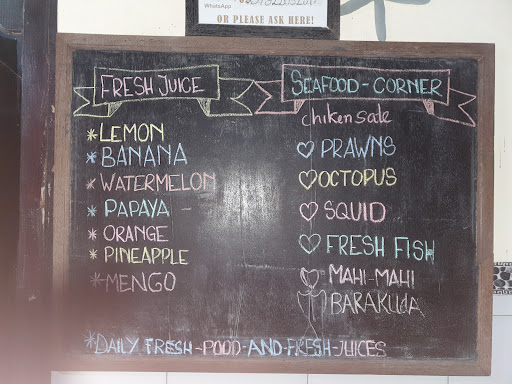 WhatsApp
OR PLEASE ASK HERE!
FRESH JUICE
*LEMON
*BANANA
*WATERMELON
*PAPAYA
*ORANGE
*PINEAPPLE
*MENGO
SEAFOOD-CORNER
chikensate
♡PRAWNS
♡OCTOPUS
♡SQUID
♡FRESH FISH
♡MAHI-MAHI
BARAKUda
*DAILY FRESH-POOD-AND-FRESH-JUICES